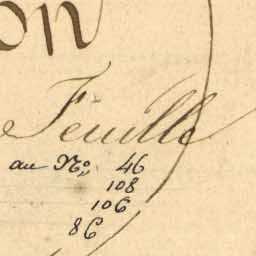 on
Feuille
au No. 46
108
106
86